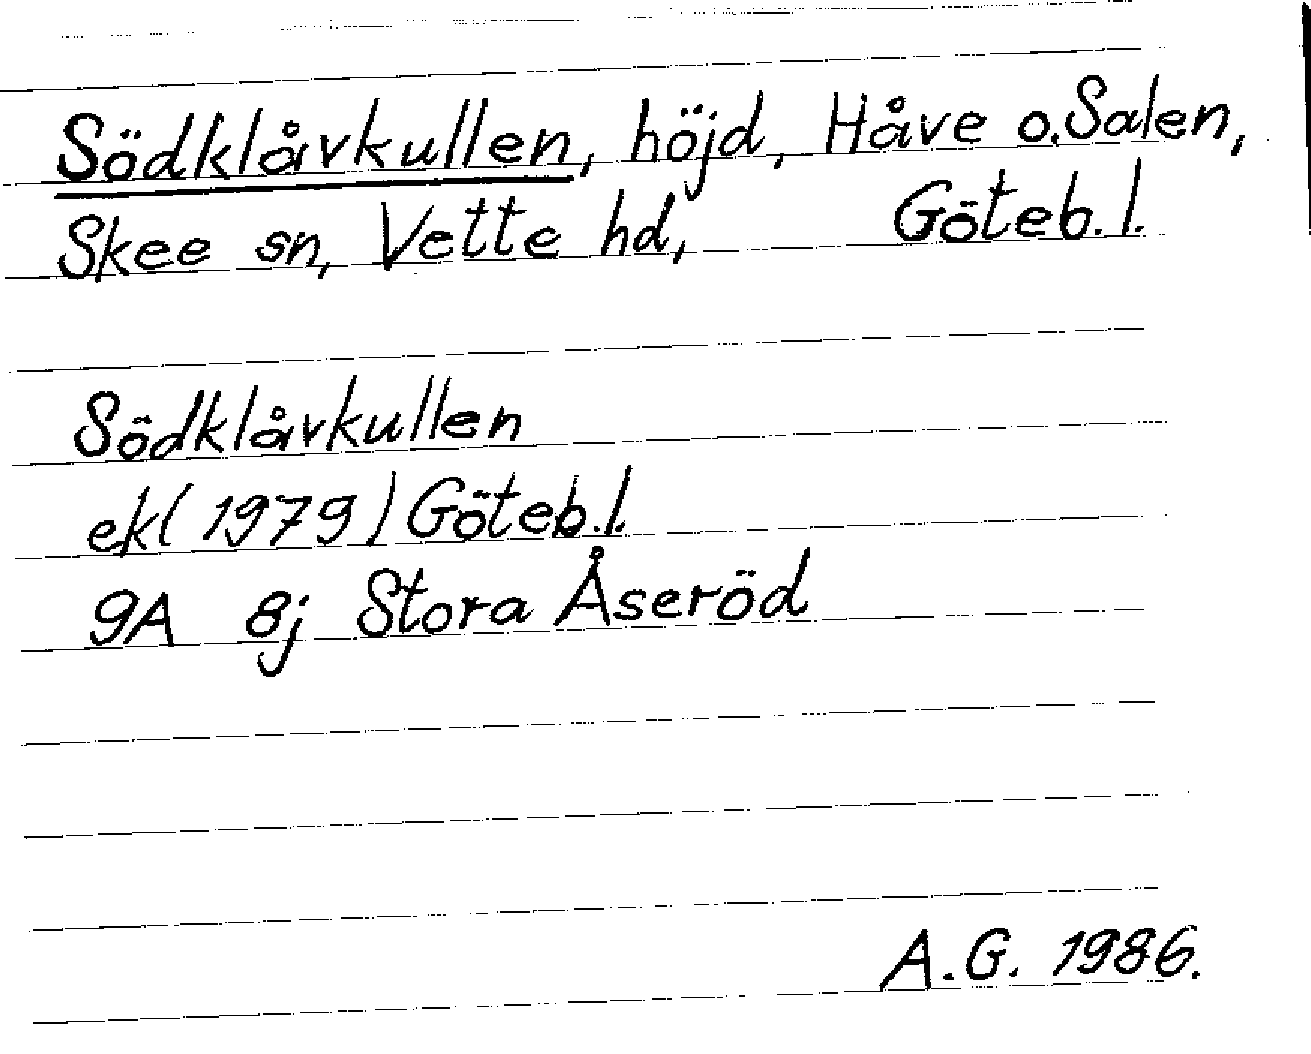 Södklåvkullen, höjd, Håve o. Salen,
Skee sn, Vette hd, Göteb. l.
Södklåvkullen
ek (1979) Göteb. l.
9A 8j Stora Åseröd
A.G. 1986.